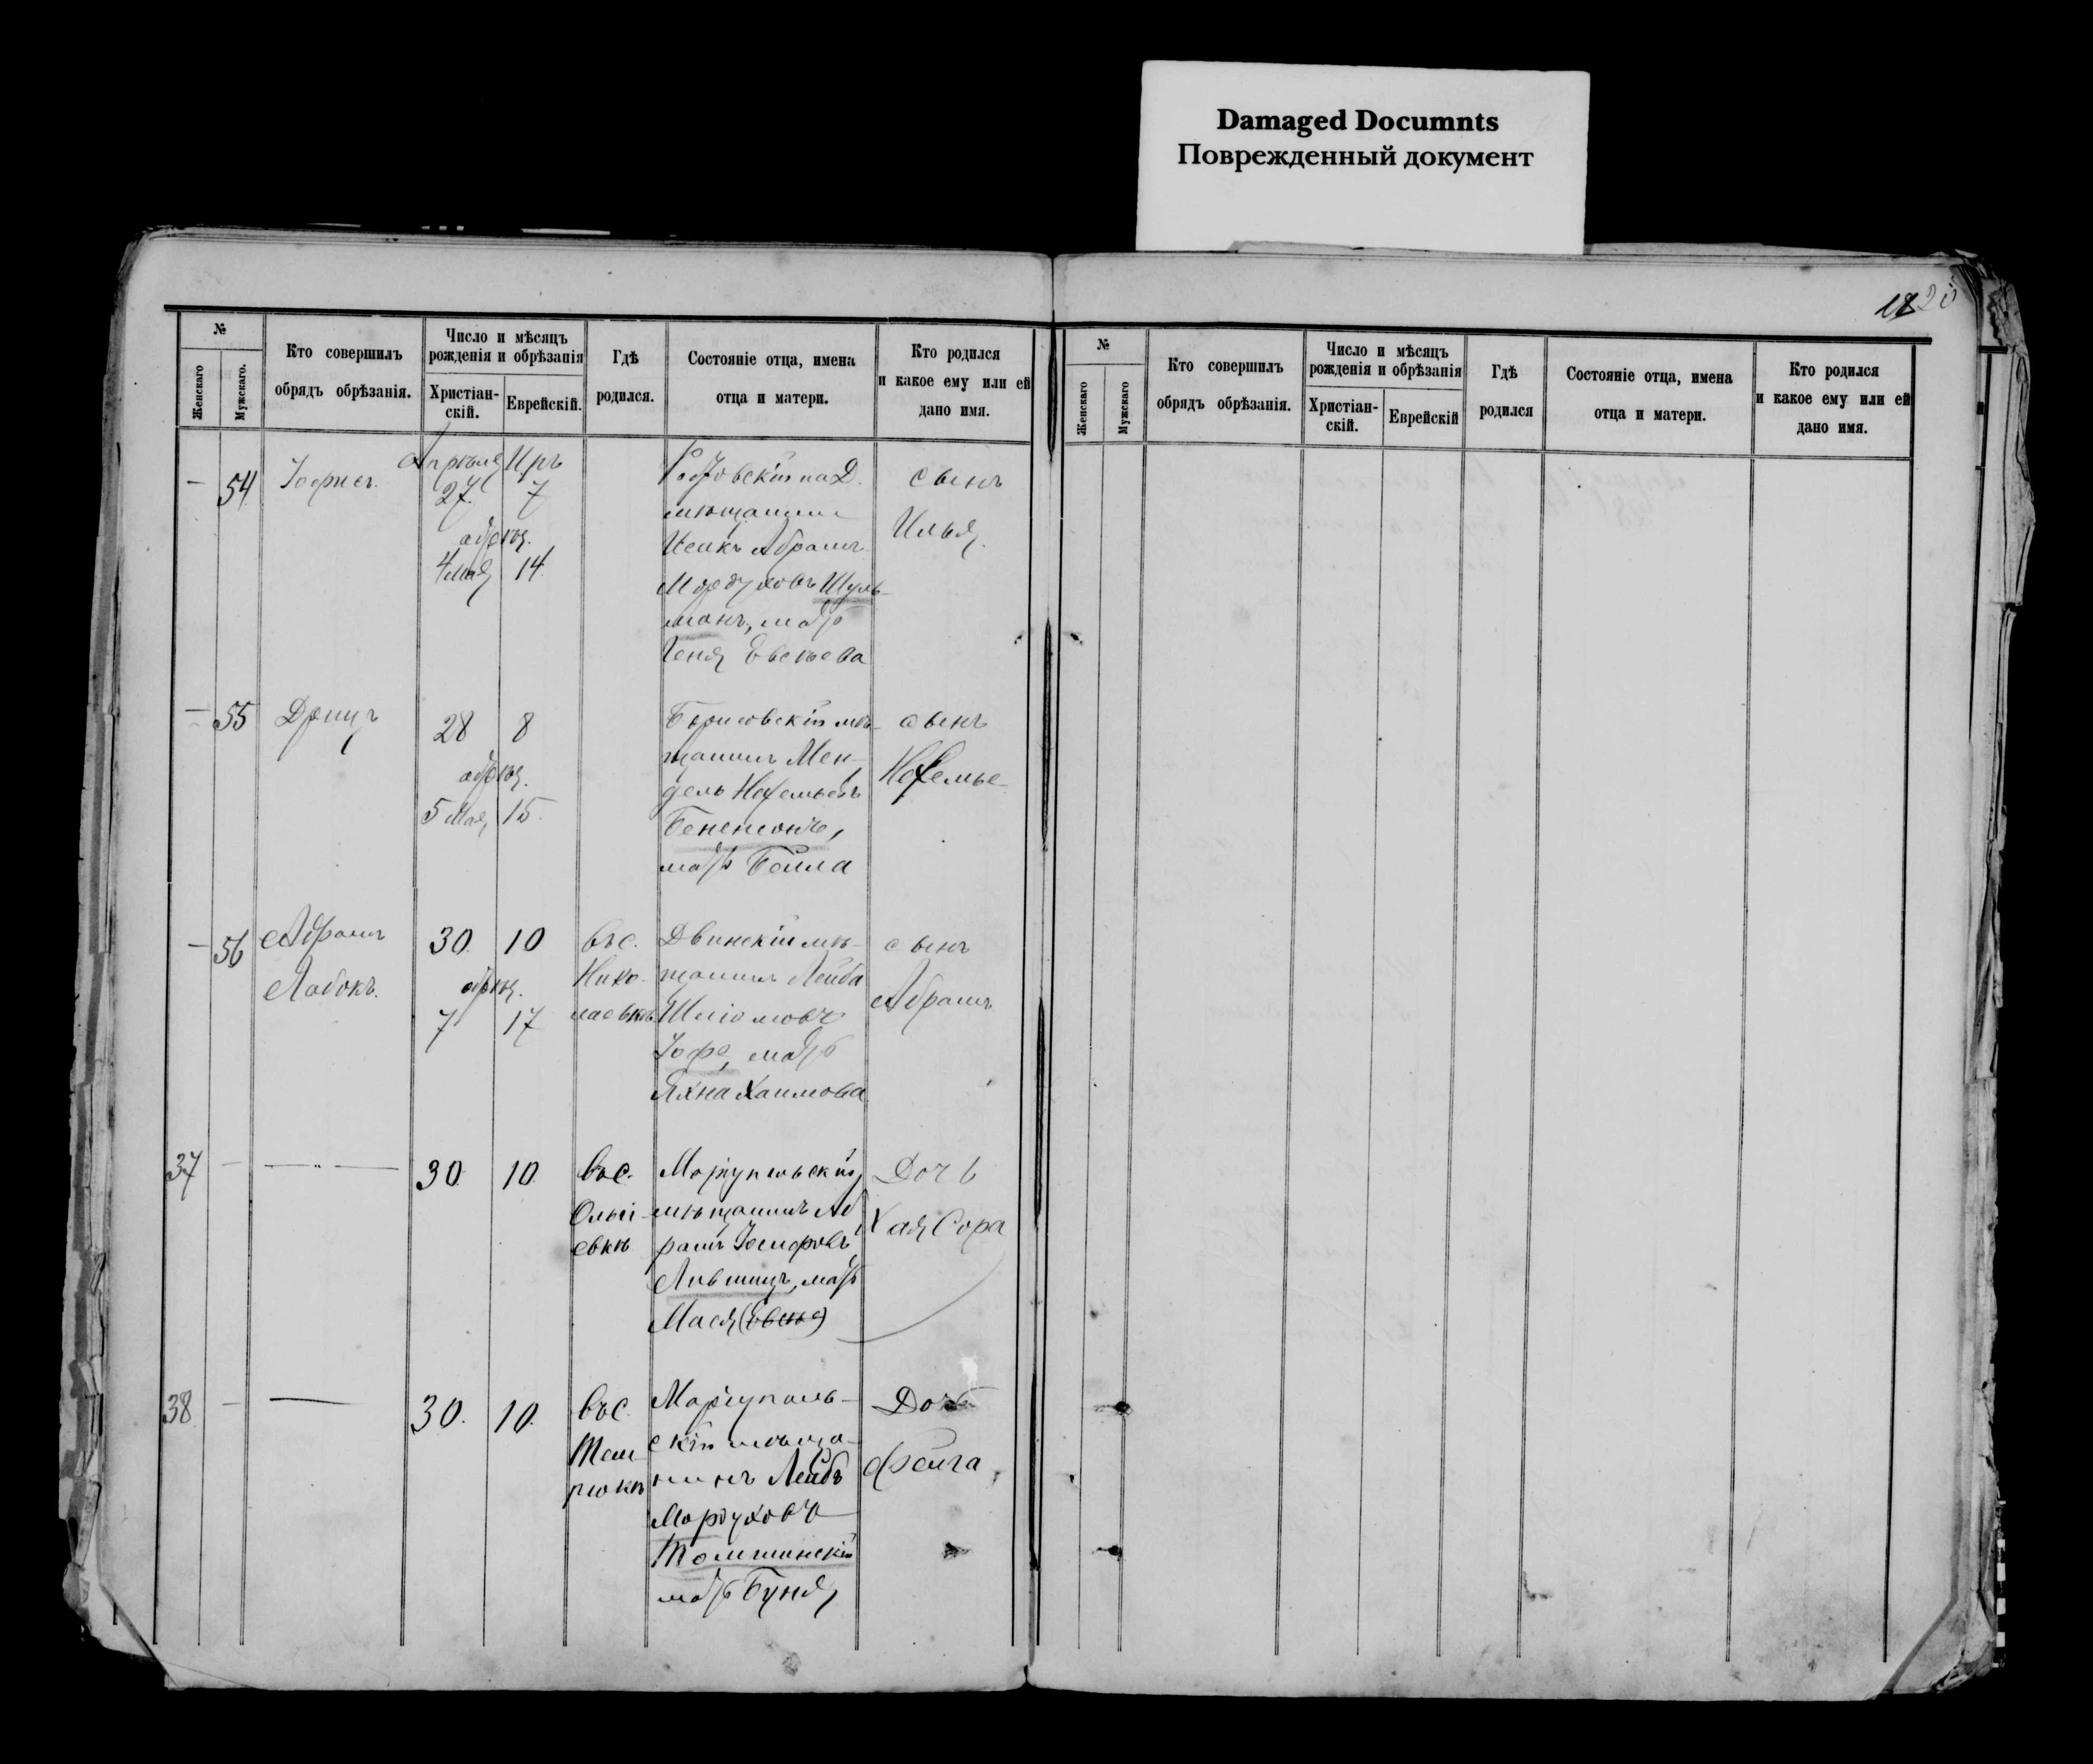 Damaged Documnts
Поврежденный документ
1820
№
Женскаго
Мужскаго.
Кто совершилъ
обрядъ обрѣзанія.
Число и мѣсяцъ
рожденія и обрѣзанія
Христіан-
скій.
Еврейскій.
Гдѣ
родился.
Состояніе отца, имена
отца и матери.
Кто родился
и какое ему или ей
дано имя.
— 54
Іофисъ.
Апрѣля Иръ
27 7
обрѣз.
4 мая 14
Ростовскій на Д.
мѣщанинъ
Исакъ Абрамъ
Мордуховъ Шуль-
манъ, мать
Геня Евсѣева
сынъ
Илья.
— 55
Друцъ
28 8
обрѣз.
5 Мая 15
Борисовскій мѣ-
щанинъ Мен-
дель
Бененсонъ,
мать Бейла
сынъ
— 56
Абрамъ
Лабокъ.
30 10
обрѣз.
7 17
въ с.
Нико-
лаевкѣ
Двинскій мѣ-
щанинъ Лейба
Шліомовъ
Іофе, мать
Яхна Хаимова
сынъ
Абрамъ
37 —
30 10
въ с.
Ольги-
евкѣ
Маріупольскій
мѣщанинъ Аб
рамъ Іосифовъ
Лившицъ, мать
Мася (Евсѣе)
Дочь
Хая Сора
38 —
30. 10.
въ с.
Тем-
рюкѣ
Маріуполь-
скій мѣща-
нинъ Лейбъ
Мордуховъ
мать Буня
Дочь
Фейга
№
Женскаго
Мужскаго
Кто совершилъ
обрядъ обрѣзанія.
Число и мѣсяцъ
рожденія и обрѣзанія
Христіан-
скій.
Еврейскій
Гдѣ
родился
Состояніе отца, имена
отца и матери.
Кто родился
и какое ему или ей
дано имя.